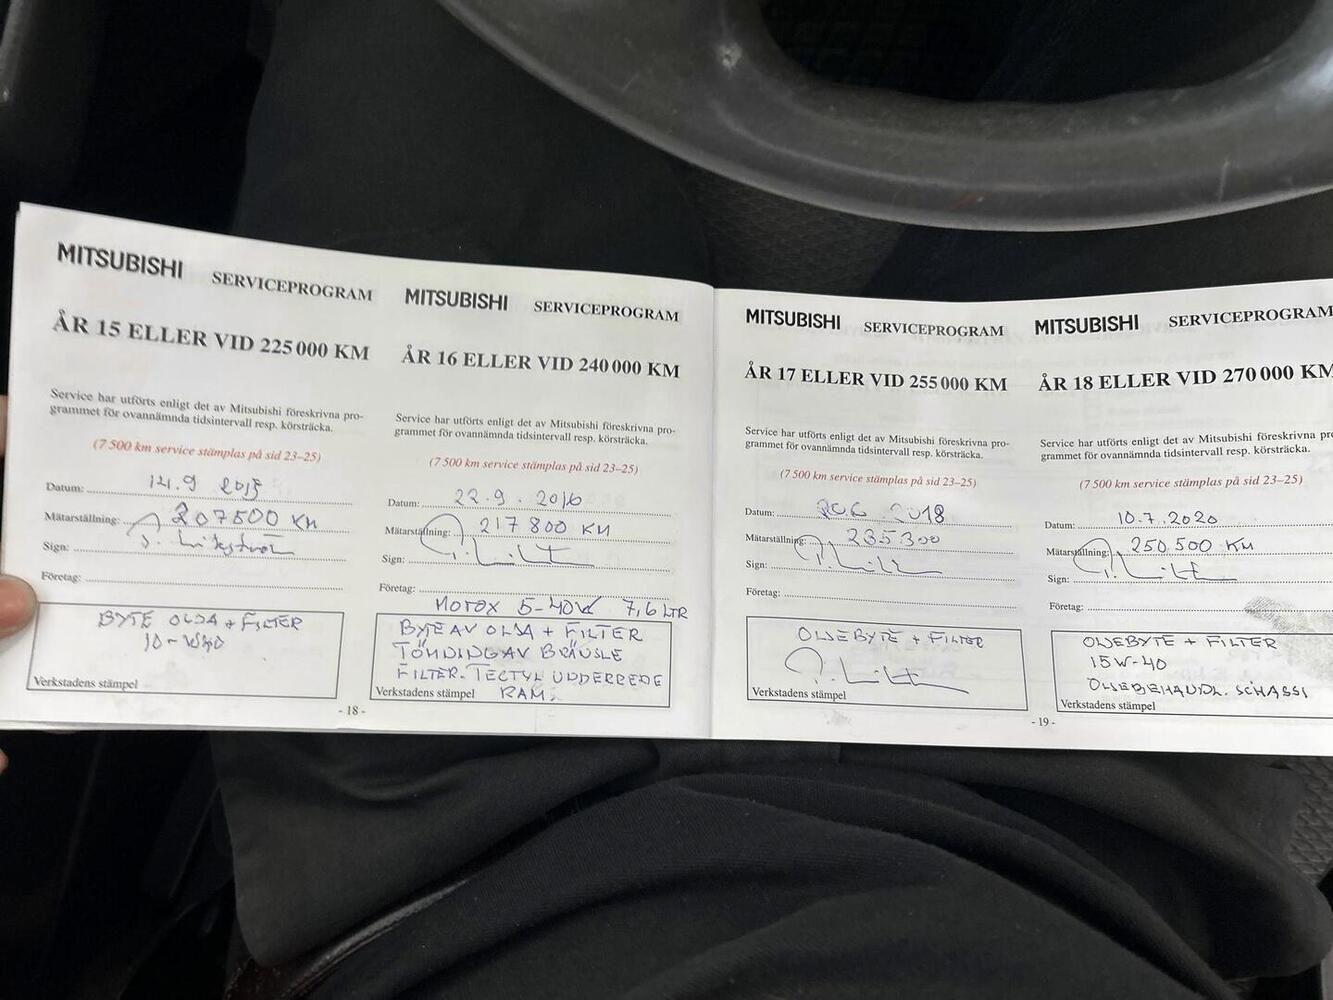 MITSUBISHI SERVICEPROGRAM
ÅR 15 ELLER VID 225 000 KM
Service har utförts enligt det av Mitsubishi föreskrivna pro-
grammet för ovannämnda tidsintervall resp. körsträcka.
(7 500 km service stämplas på sid 23–25)
Datum: 14.9 2015
Mätarställning: 207500 KM
Sign:
Företag:
BYTE OLJA + FILTER
10-W40
Verkstadens stämpel
- 18 -
MITSUBISHI SERVICEPROGRAM
ÅR 16 ELLER VID 240 000 KM
Service har utförts enligt det av Mitsubishi föreskrivna pro-
grammet för ovannämnda tidsintervall resp. körsträcka.
(7 500 km service stämplas på sid 23–25)
Datum: 22.9.2016
Mätarställning: 217 800 KM
Sign:
Företag:
MOTOX 5-40W 7,6 LTR
BYTE AV OLJA + FILTER
TÖMNING AV BRÄNSLE
FILTER. TECTYL UNDERREDE
RAM.
Verkstadens stämpel
MITSUBISHI SERVICEPROGRAM
ÅR 17 ELLER VID 255 000 KM
Service har utförts enligt det av Mitsubishi föreskrivna pro-
grammet för ovannämnda tidsintervall resp. körsträcka.
(7 500 km service stämplas på sid 23–25)
Datum: 2018
Mätarställning: 235 300
Sign:
Företag:
OLJEBYTE + FILTER
Verkstadens stämpel
- 19 -
MITSUBISHI SERVICEPROGRAM
ÅR 18 ELLER VID 270 000 KM
Service har utförts enligt det av Mitsubishi föreskrivna pr
grammet för ovannämnda tidsintervall resp. körsträcka.
(7 500 km service stämplas på sid 23–25)
Datum: 10.7.2020
Mätarställning: 250 500 KM
Sign:
Företag:
OLJEBYTE + FILTER
15W-40
OLJEBEHANDL. SCHASSI
Verkstadens stämpel